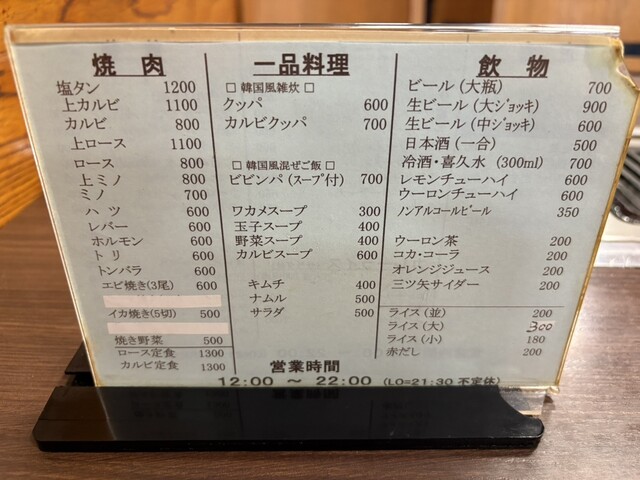 焼肉
塩タン 1200
上カルビ 1100
カルビ 800
上ロース 1100
ロース 800
上ミノ 800
ミノ 700
ハツ 600
レバー 600
ホルモン 600
トリ 600
トンバラ 600
エビ焼き(3尾) 600
イカ焼き(5切) 500
焼き野菜 500
ロース定食 1300
カルビ定食 1300
一品料理
□ 韓国風雑炊 □
クッパ 600
カルビクッパ 700
□ 韓国風混ぜご飯 □
ビビンパ(スープ付) 700
ワカメスープ 300
玉子スープ 400
野菜スープ 400
カルビスープ 600
キムチ 400
ナムル 500
サラダ 500
飲物
ビール(大瓶) 700
生ビール(大ジョッキ) 900
生ビール(中ジョッキ) 600
日本酒(一合) 500
冷酒・喜久水 (300ml) 700
レモンチューハイ 600
ウーロンチューハイ 600
ノンアルコールビール 350
ウーロン茶 200
コカ・コーラ 200
オレンジジュース 200
三ツ矢サイダー 200
ライス(並) 200
ライス(大) 300
ライス(小) 180
赤だし 200
営業時間
12:00 ～ 22:00 (LO=21:30 不定休)